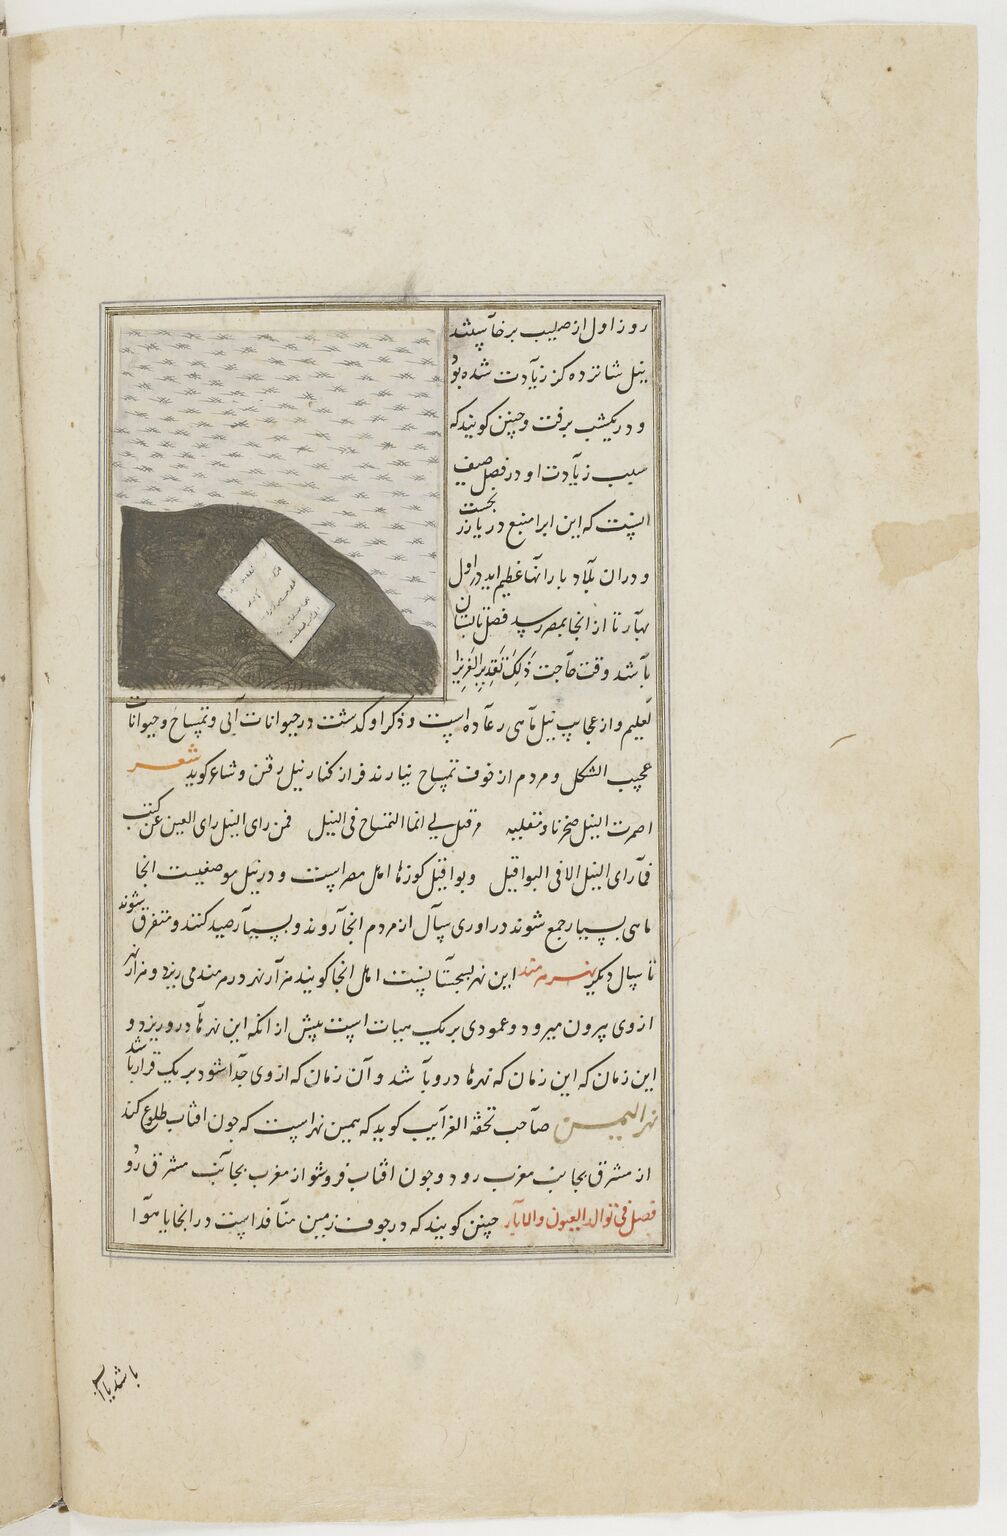 روز اول از صلیب برخاستند
نیل شانزده کز زیادت شده بود
و در یکشب برفت و چنین کویند که
سبب زیادت او در فصل صیف
انست که این را منبع در یازر بخست
و در ان بلاد بارانها عظیم اید در اول
بهار تا از انجا بمصر رسد فصل تابستان
باشد وقت حاجت ذَلِكَ تَقدِیرُ العَزِیزِ ا
لعلیم و از عجایب نیل ماهی رعاده است و ذکر او کدشت در حیوانات آبی و تمساح و حیوانات
عجیب الشکل و مردم از خوف تمساح نیارند فراز کنار نیل رفتن و شاعر کوید شعر
اصرت النیل و تقلیه قیل لی انما التمساح فی النیل فمن رای النیل رای العین عن کثب
فما رای النیل الا فی البواقیل و بواقیل کوزها اهل مصر است و در نیل موضعیست انجا
ماهی بسیار جمع شوند در اوری سآل از مردم انجا روند و بسیار صید کنند و متفرق شوند
تا سال دیکر نهر هرمند این نهر بسجستانست اهل انجا کویند هزار نهر در هرمند می ریزد و هزار نهر
از وی بیرون میرود و عمودی بر یک هیات است پیش از انکه این نهرها در و ریزد و
این زمان که این زمان که نهرها در و باشد و آن زمان که از وی جدا شود بر یک قرار باشد
نهر الیمن صاحب تحفة الغرایب کوید که بیمن نهر است که چون افتاب طلوع کند
از مشرق بجانب مغرب رود و چون افتاب فرو شو از مغرب بجانب مشرق رود
فصل فی توالد العیون والابار چنین کویند که در جوف زمین منافذ است در انجا یا هوا
باشد یا آب